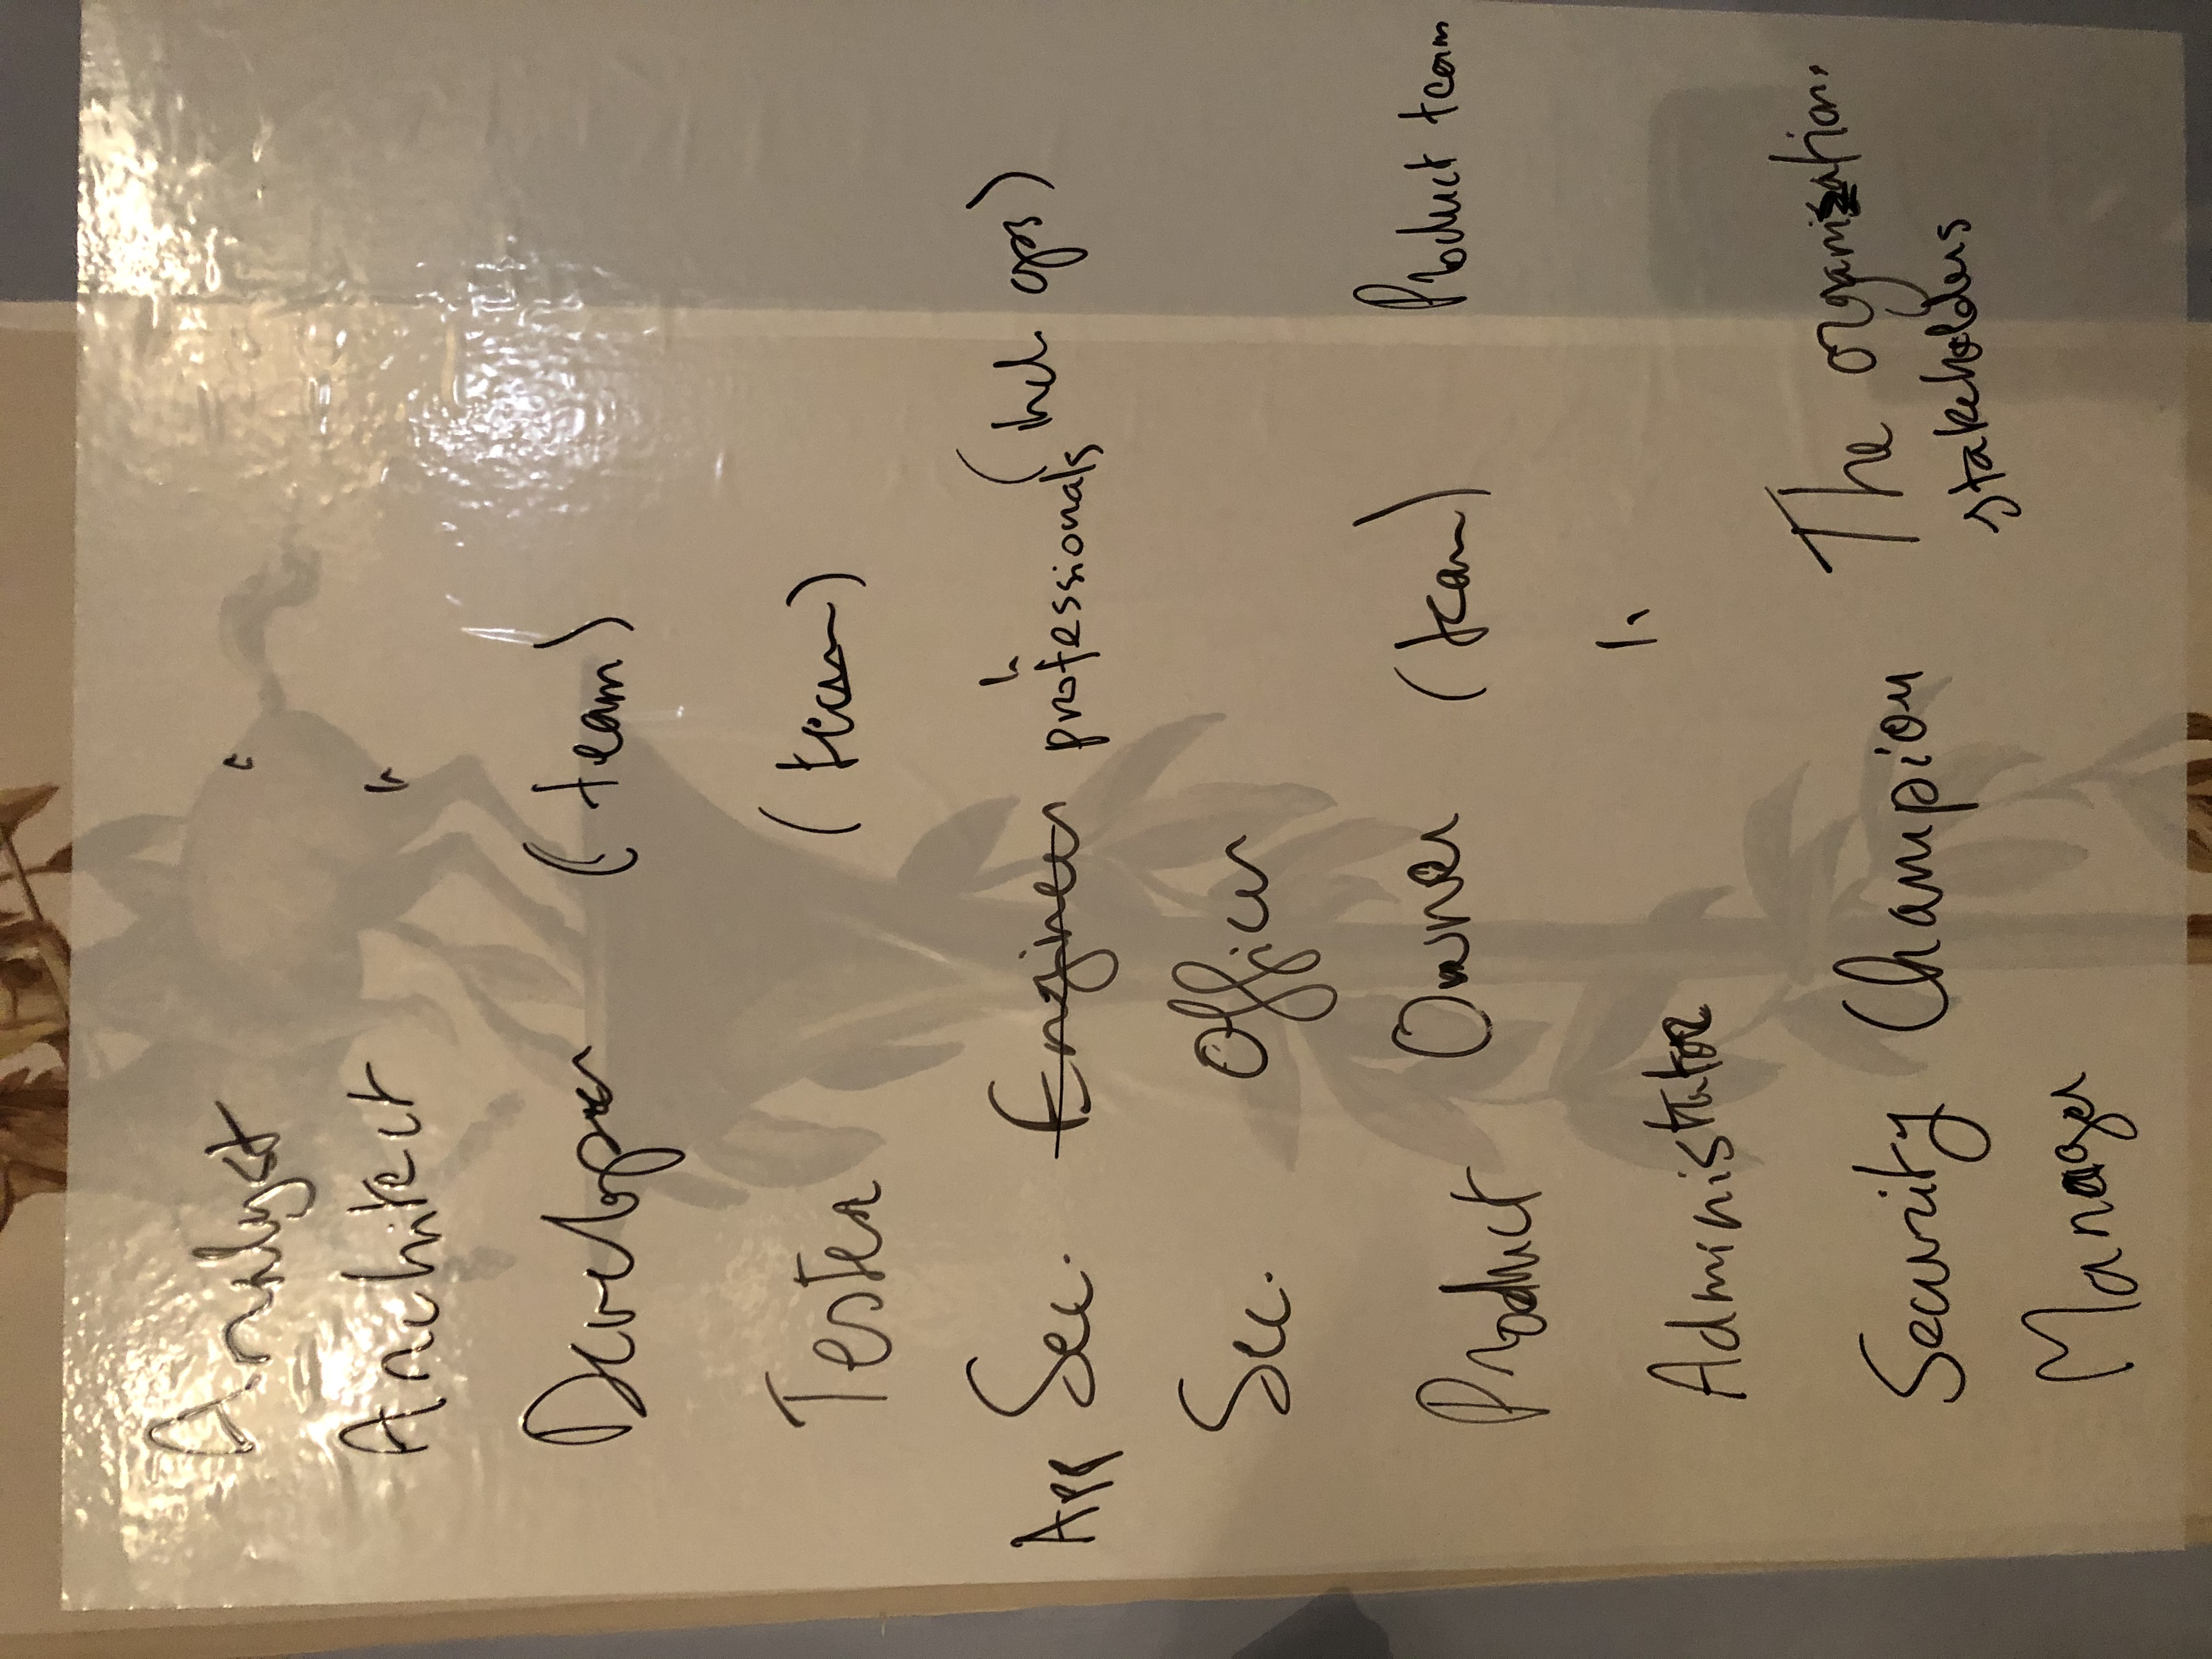 Analyst "
Architect "
Developer (team)
Tester (team)
App Sec. Engineer " professionals (incl. ops)
Sec. Officer
Product Owner (team) Product team
Administrator "
Security Champion The organization.
stakeholders
Manager